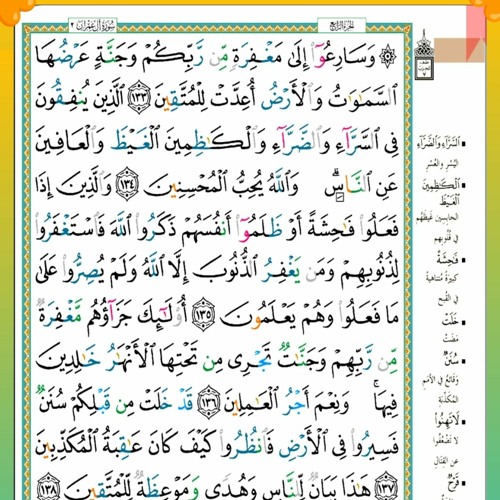 سُورَةُ آلِ عِمْرَانَ ٣
الجُزءُ الرَّابِعُ
۞ وَسَارِعُوٓا۟ إِلَىٰ مَغْفِرَةٍ مِّن رَّبِّكُمْ وَجَنَّةٍ عَرْضُهَا
ٱلسَّمَٰوَٰتُ وَٱلْأَرْضُ أُعِدَّتْ لِلْمُتَّقِينَ ١٣٣ ٱلَّذِينَ يُنفِقُونَ
فِى ٱلسَّرَّآءِ وَٱلضَّرَّآءِ وَٱلْكَٰظِمِينَ ٱلْغَيْظَ وَٱلْعَافِينَ
عَنِ ٱلنَّاسِ ۗ وَٱللَّهُ يُحِبُّ ٱلْمُحْسِنِينَ ١٣٤ وَٱلَّذِينَ إِذَا
فَعَلُوا۟ فَٰحِشَةً أَوْ ظَلَمُوٓا۟ أَنفُسَهُمْ ذَكَرُوا۟ ٱللَّهَ فَٱسْتَغْفَرُوا۟
لِذُنُوبِهِمْ وَمَن يَغْفِرُ ٱلذُّنُوبَ إِلَّا ٱللَّهُ وَلَمْ يُصِرُّوا۟ عَلَىٰ
مَا فَعَلُوا۟ وَهُمْ يَعْلَمُونَ ١٣٥ أُو۟لَٰٓئِكَ جَزَآؤُهُم مَّغْفِرَةٌ
مِّن رَّبِّهِمْ وَجَنَّٰتٌ تَجْرِى مِن تَحْتِهَا ٱلْأَنْهَٰرُ خَٰلِدِينَ
فِيهَا ۚ وَنِعْمَ أَجْرُ ٱلْعَٰمِلِينَ ١٣٦ قَدْ خَلَتْ مِن قَبْلِكُمْ سُنَنٌ
فَسِيرُوا۟ فِى ٱلْأَرْضِ فَٱنظُرُوا۟ كَيْفَ كَانَ عَٰقِبَةُ ٱلْمُكَذِّبِينَ
١٣٧ هَٰذَا بَيَانٌ لِّلنَّاسِ وَهُدًى وَمَوْعِظَةٌ لِّلْمُتَّقِينَ ١٣٨
السَّرَّاءِ وَالضَّرَّاءِ
اليُسْرِ والعُسْرِ
الْكَاظِمِينَ
الْغَيْظَ
الحابسين غَيظَهُم
في قُلوبِهم
فَاحِشَةً
كبيرةً مُتناهيةً
في القُبح
خَلَتْ
مَضَتْ
سُنَنٌ
وقائعُ في الأُمَمِ
المُكذِّبَة
لَا تَهِنُوا
لا تَضْعُفُوا
عن القِتَالِ
قَرْحٌ